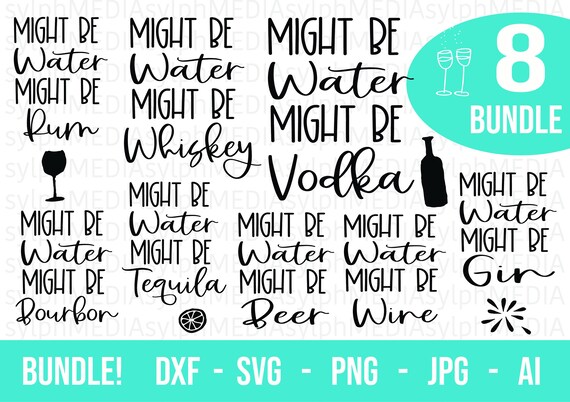 MIGHT BE
Water
MIGHT BE
Rum
MIGHT BE
Water
MIGHT BE
Whiskey
MIGHT BE
Water
MIGHT BE
Vodka
8
BUNDLE
MIGHT BE
Water
MIGHT BE
Bourbon
MIGHT BE
Water
MIGHT BE
Tequila
MIGHT BE
Water
MIGHT BE
Beer
MIGHT BE
Water
MIGHT BE
Wine
MIGHT BE
Water
MIGHT BE
Gin
BUNDLE! DXF - SVG - PNG - JPG - AI